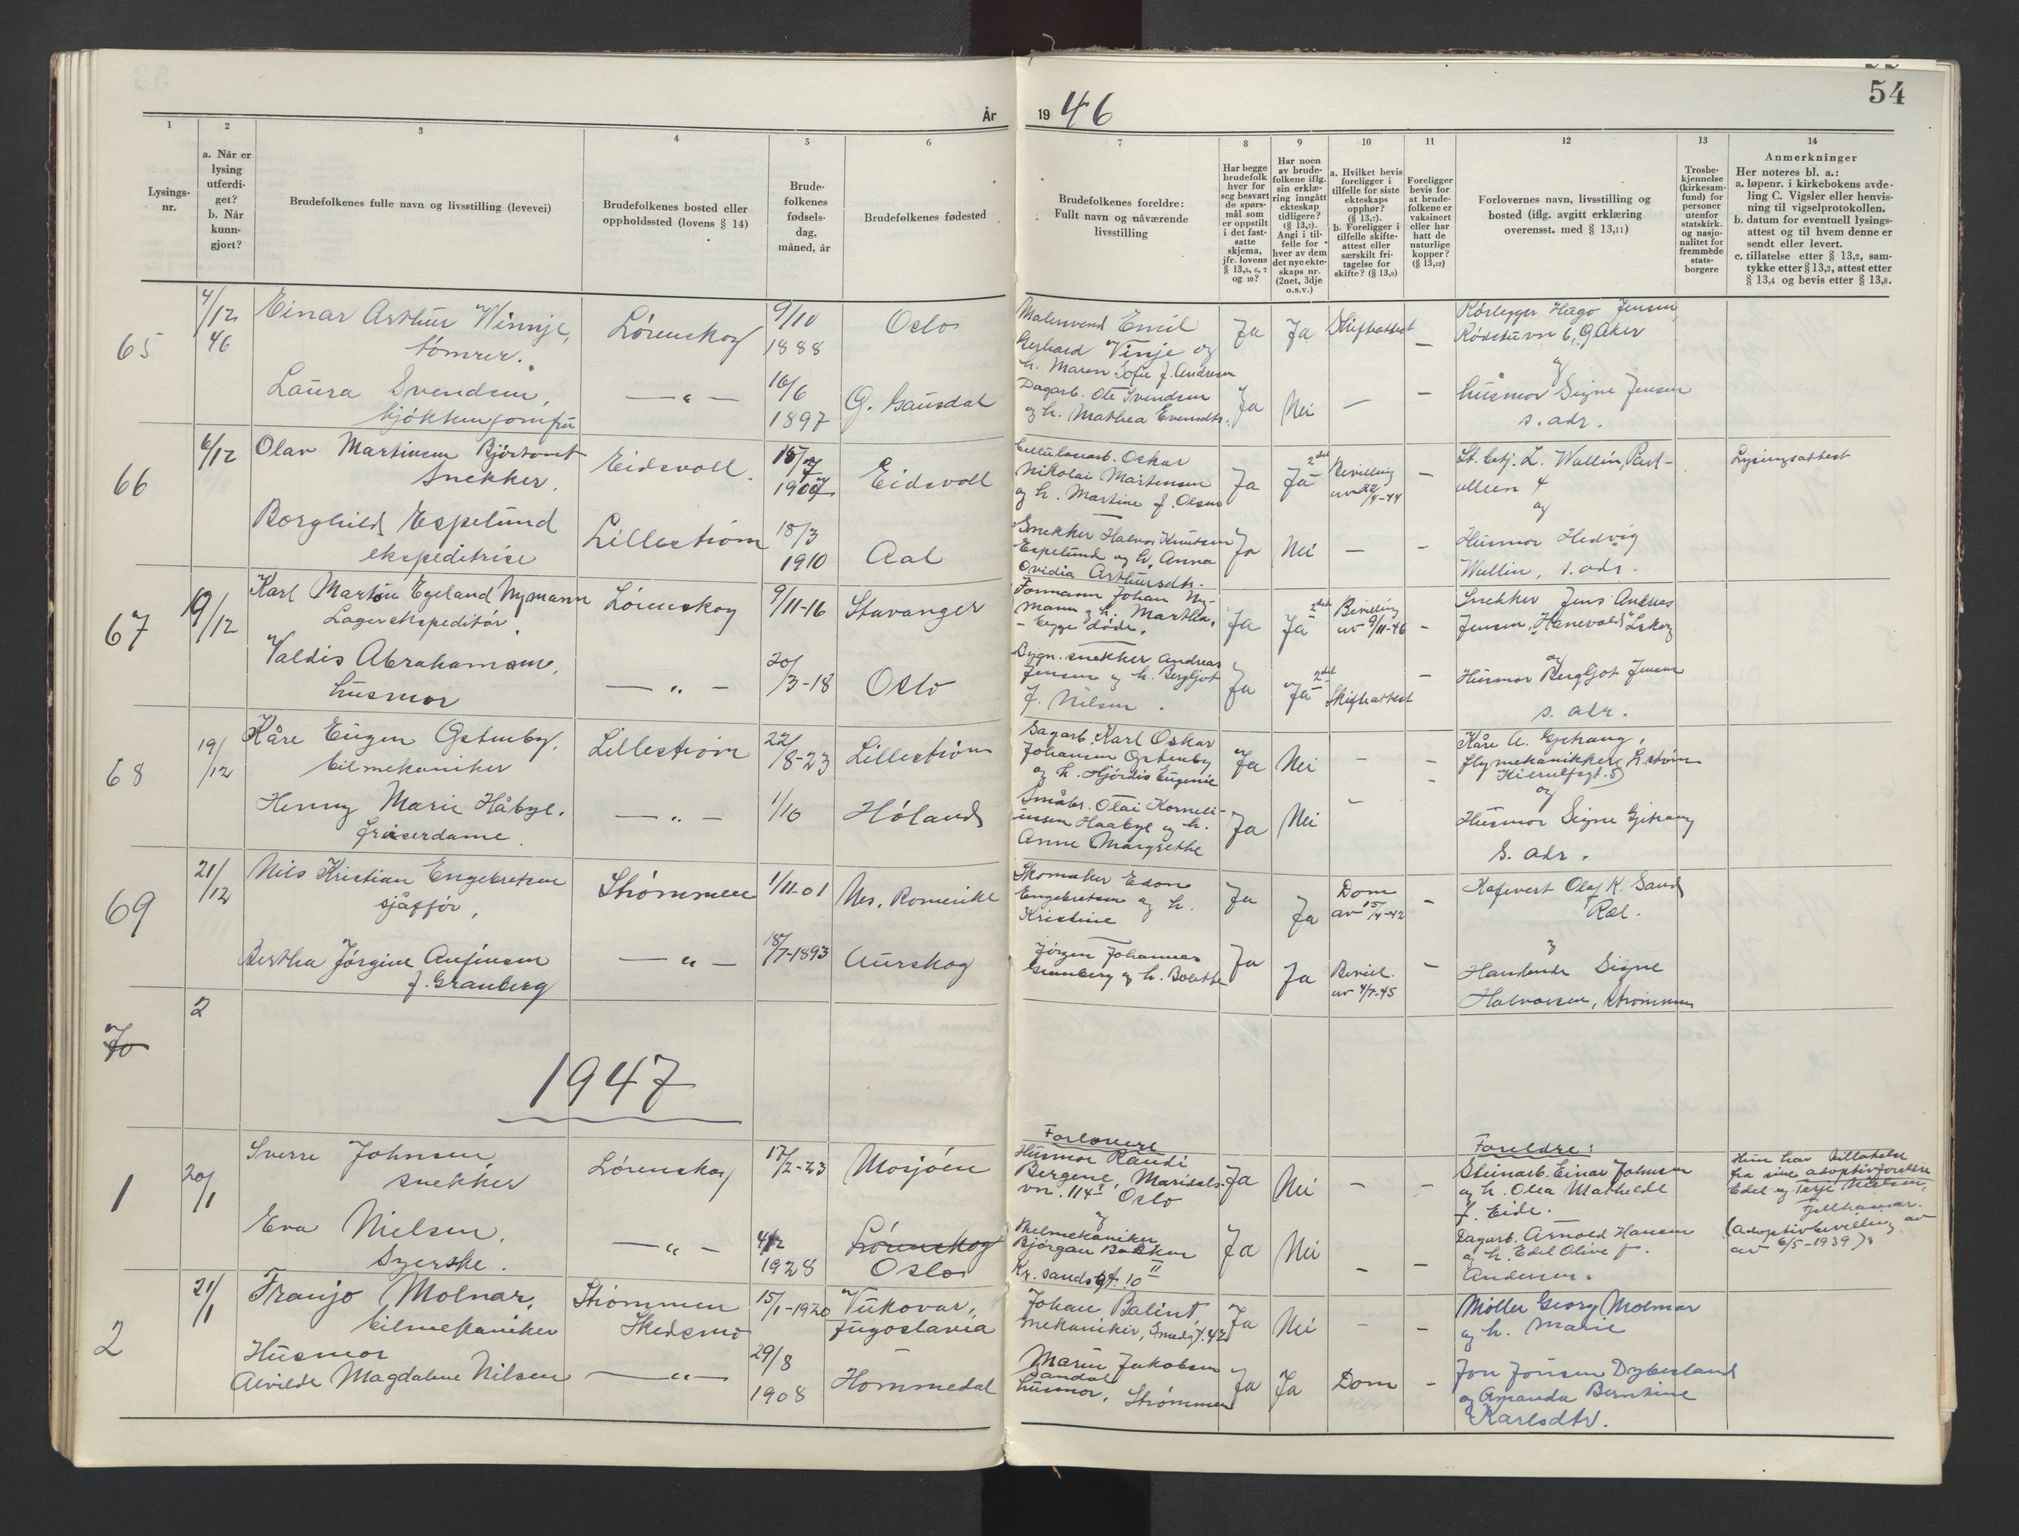 54
År
19 46
1
2
3
4
5
6
7
8
9
10
11
12
13
14
Lysings-
nr.
a. Når er
lysing
utferdi-
get?
b. Når
kunn-
gjort?
Brudefolkenes fulle navn og livsstilling (levevei)
Brudefolkenes bosted eller
oppholdssted (lovens § 14)
Brude-
folkenes
fødsels-
dag,
måned, år
Brudefolkenes fødested
Brudefolkenes foreldre:
Fullt navn og nåværende
livsstilling
Har begge
brudefolk
hver for
seg besvart
de spørs-
mål som
er oppstilt
i det fast-
satte
skjema,
jfr. lovens
§ 13,5, 6, 7
og 10?
Har noen
av brude-
folkene iflg.
sin erklæ-
ring inngått
ekteskap
tidligere?
(§ 13,7).
Angi i til-
felle for
hver av dem
det nye ekte-
skaps nr.
(2net, 3dje
o.s.v.)
a. Hvilket bevis
foreligger i
tilfelle for siste
ekteskaps
opphør?
(§ 13,7).
b. Foreligger i
tilfelle skifte-
attest eller
særskilt fri-
tagelse for
skifte? (§ 13,9)
Foreligger
bevis for
at brude-
folkene er
vaksinert
eller har
hatt de
naturlige
kopper?
(§ 13,12)
Forlovernes navn, livsstilling og
bosted (iflg. avgitt erklæring
overensst. med § 13,11)
Trosbe-
kjennelse
(kirkesam-
fund) for
personer
utenfor
statskirk.
og nasjo-
nalitet for
fremmede
stats-
borgere
Anmerkninger
Her noteres bl. a.:
a. løpenr. i kirkebokens avde-
ling C. Vigsler eller henvis-
ning til vigselprotokollen.
b. datum for eventuell lysings-
attest og til hvem denne er
sendt eller levert.
c. tillatelse etter § 13,2, sam-
tykke etter § 13,3, attest etter
§ 13,4 og bevis etter § 13,8.
65
4/12
46
Einar Arthur Winnje,
tømrer.
Lørenskog
9/10
1888
Oslo
Malersvend Emil
Gerhard Vinje og
h. Maren Sofie f. Andresen
Ja
Ja
Skifteattest
–
Rørlegger Hugo Jensen,
Rødstuvn 6, Ø Aker
og
Laura Svendsen,
kjøkkenjomfru
— " —
16/6
1897
G. Gausdal
Dagarb. Ole Svendsen
og h. Mathea Evensdtr.
Ja
Nei
–
–
husmor Signe Jensen
s. adr.
66
6/12
Olav Martinsen Bjørtomt
Snekker.
Eidsvoll.
18/7
1907
Eidsvoll
Cellulosearb. Oskar
Nikolai Martensen
og h. Martine f. Olsen
Ja
2det
Ja
Bevilling
av 22/4-44
–
L. Wallin, Park-
alleen 4
og
Lysingsattest
Borghild Espelund
ekspeditrise
Lillestrøm
18/3
1910
Aal
Snekker Halvor Knutsen
Espelund og h. Anna
Ovidia Arthursdtr.
Ja
Nei
–
–
Husmor Hedvig
Wallin, s. adr.
67
19/12
Karl Martin Egeland Nymann
Lagerekspeditør
Lørenskog
9/11-16
Stavanger
Formann Johan Ny-
mann og h. Martha,
– begge døde.
Ja
2det
Ja
Bevilling
av 9/11-46
–
Snekker Jens Andreas
Jensen, "Hanevold" Lskog
og
Valdis Abrahamsen,
husmor
— " —
20/3-18
Oslo
Bygn.snekker Andreas
Jensen og h. Bergljot
f. Nilsen.
Ja
2det
Ja
Skifteattest
–
Husmor Bergljot Jensen
s. adr.
68
19/12
Kåre Eugen Østenby,
bilmekaniker
Lillestrøm
22/8-23
Lillestrøm
Sagarb. Karl Oskar
Johansen Østenby
og h. Hjørdis Eugenie
Ja
Nei
–
–
Kåre A. Gjetrang,
flymekanikker, L.strøm
Kierulfsgt. 5)
og
Henny Marie Håbye.
friserdame.
— " —
1/10
Høland
Småbr. Olai Korneli-
ussen Haabye og h.
Anne Margrethe
Ja
Nei
–
–
Husmor Signe Gjetrang
s. adr.
69
21/12
Nils Kristian Engebretsen
sjåfför,
Strømmen
1/11-01
Nes, Romerike
Skomaker Edon
Engebretsen og h.
Kristine
Ja
Ja
Dom
av 15/4-42
–
Kafevert Olaf K. Sand
Ræl.
og
Bertha Jørgine Anfinsen
f. Granberg
— " —
18/7-1893
Aurskog
Jørgen Johannes
Granberg og h. Bolette
Ja
Ja
Bevill.
av 4/7-45
–
Handlende Signe
Halvorsen, Strømmen
70
2
1947
1
20/1
Sverre Johnsen,
snekker
Lørenskog
17/2-23
Mosjøen
Forlovere
Husmor Randi
Bergene, Maridals-
vn. 114I Oslo
og
Ja
Nei
–
–
Foreldre:
Steinarb. Einar Johnsen
og h. Olea Mathilde
f. Eide.
Hun har tillatelse
fra sine adoptivforeldre
Edel og Terje Nielsen,
Fjellhamar.
(adoptivbevilling av
av 6/5-1939).
Eva Nielsen,
Syerske.
— " —
4/12
1928
Lørenskog
Oslo
Bilmekaniker
Bjørgan Bakken
Kr.sandsgt. 10 II
Ja
Nei
–
–
Dagarb. Arnold Hansen
og h. Edel Olive f.
Andersen.
2
21/1
Franjo Molnar,
bilmekaniker
Strømmen
Skedsmo
15/1-1920
Vukovar,
Jugoslavia
Johan Balint,
mekaniker, Smedgt. 42
Ja
Nei
–
–
Møller Georg Molnar
og h. Marie
Husmor
Alvilde Magdalene Nilsen
— " —
29/8
1908
Hommedal
Marie Jakobsen
Sandal
husmor, Strømmen
Ja
Ja
Dom
–
Jon Jonsen Dybesland
og Amanda Berntine
Karlsdtr.